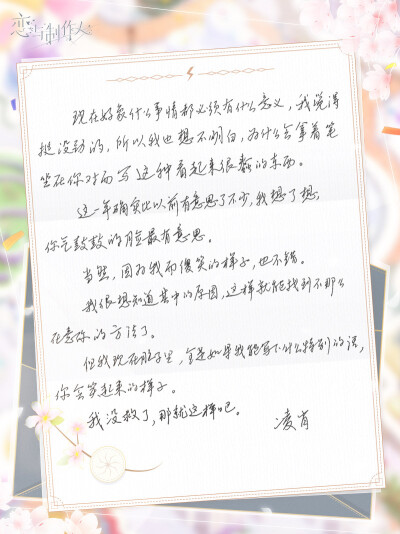 恋与制作人
现在好象什么事情都必须有什么意义，我觉得
挺没劲的，所以我也想不明白，为什么会拿着笔
坐在你对面写这种看起来很蠢的东西。
这一年确实比以前有意思了不少，我想了想，
你气鼓鼓的脸最有意思。
当然，因为我而傻笑的样子，也不错。
我很想知道其中的原因，这样就能找到不那么
在意你的方法了。
但我现在脑子里，全是如果我能写下什么特别的话，
你会笑起来的样子。
我没救了，那就这样吧。
凌肖